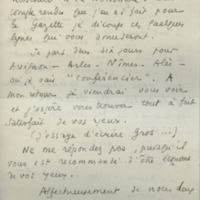 comprendre que j'ai fait pour
la Gazette, j'ai découpé ces quelques
lignes qui vous amuseront.
Je pars dans six jours pour
Avignon - Arles - Nîmes - Alès -
où je vais "conférencier". A
mon retour je viendrai vous voir
et j'espère vous trouver tout à fait
satisfait de vos yeux.
(J'essaye d'écrire gros...)
Ne me répondez pas, puisqu'il
vous est recommandé d'être
de vos yeux.
Affectueusement à vous deux